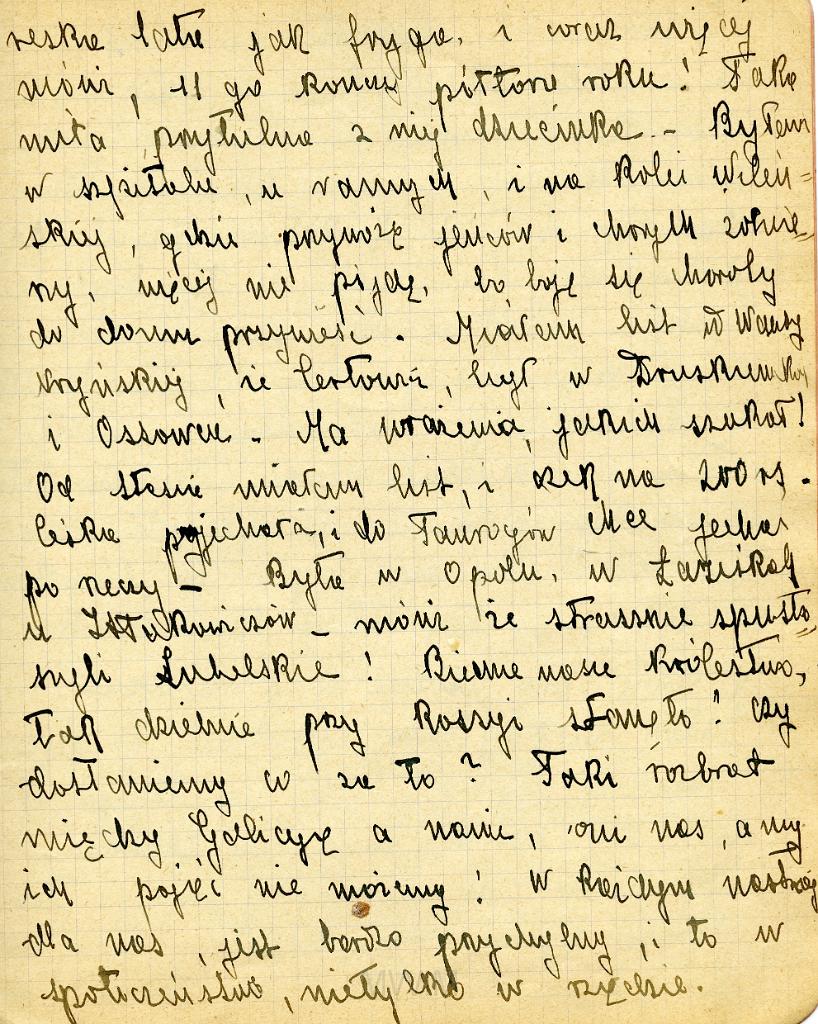 reska lata jak fryga, i coraz więcej
mówi, 11 go kończy półtora roku! Taka
miła przytulna z niej dziecinka – Byłam
w szpitalu, u rannych, i na kolei Wileń=
skiej, gdzie przywożą jeńców i chorych żołnie=
rzy, więcej nie pójdę, bo boję się choroby
do domu przynieść. Miałam list od
że był w
i Ossowcu. Ma wrażenia, jakich szukał!
Od Stasia miałam list, i czek na 200 rs.
pojechała, i do Taurogów chce jechać
po rzeczy – Była w Opolu, w Łaziskach
u – mówi że strasznie spusto=
szyli Lubelskie! Biedne nasze Królestwo,
tak dzielnie przy Rosyi stanęło! czy
dostaniemy co za to? Taki rozbrat
między Galicyą a nami, oni nas, a my
ich pojąć nie możemy! W każdym nastrój
dla nas, jest bardzo przychylny, i to w
społeczeństwie, nietylko w rządzie.